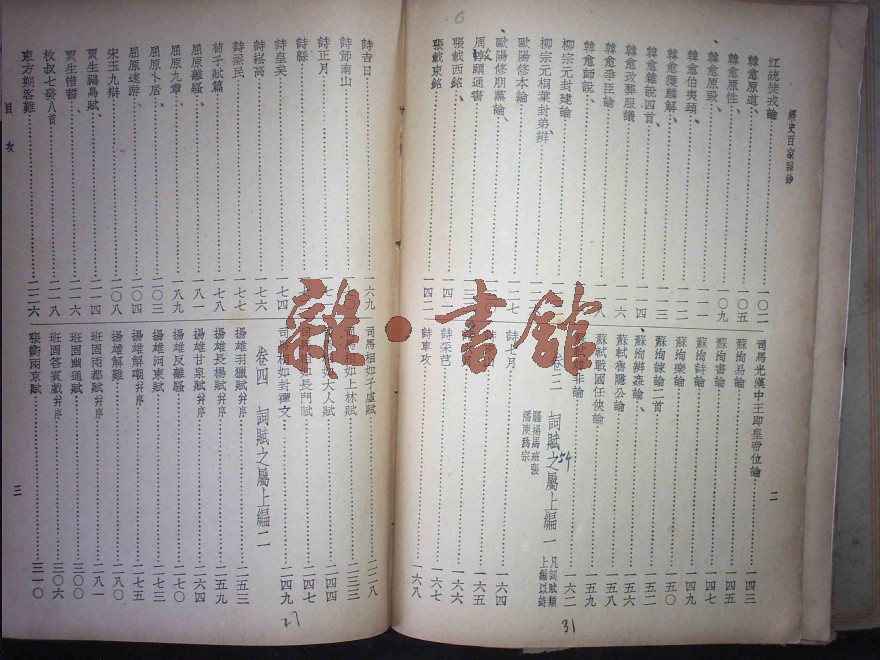 經史百家雜鈔
二
江統徙戎論 一〇二
韓愈原道 一〇五
韓愈原性
韓愈原毀 一〇九
韓愈伯夷頌
韓愈獲麟解
韓愈雜說四首 一一三
韓愈改葬服議
韓愈爭臣論 一一六
韓愈師說 一一八
柳宗元封建論
柳宗元桐葉封弟辨
歐陽修本論
歐陽修朋黨論
周敦頤通書
張載西銘
張載東銘 一四二
司馬光漢中王即皇帝位論 一四三
蘇洵易論 一四五
蘇洵書論 一四七
蘇洵詩論 一四九
蘇洵樂論 一五〇
蘇洵諫論二首 一五二
蘇洵辨姦論 一五五
蘇軾魯隱公論 一五六
蘇軾戰國任俠論 一五九
非論 一六二
卷三 詞賦之屬上編一
凡詞賦類
上編以詩
騷揚馬班張
潘庾爲宗
54
詩七月 一六四
一六五
詩采芑 一六六
詩車攻 一六八
31
詩吉日 一六九
詩節南山
詩正月
詩縣
詩皇矣 一七四
詩崧高 一七六
詩烝民 一七七
荀子賦篇 一七八
屈原離騷 一八一
屈原九章 一八九
屈原卜居
屈原遠游 二〇三
宋玉九辯 二〇八
賈生鵩鳥賦 二一四
賈生惜誓 二一六
枚叔七發八首 二一八
東方朔答難 二二六
目次
三
司馬相如子虛賦 二二八
司馬相如上林賦 二三三
大人賦 二四四
長門賦 二四七
司馬相如封禪文 二四九
卷四 詞賦之屬上編二
揚雄羽獵賦并序 二五三
揚雄長楊賦并序 二五九
揚雄甘泉賦并序 二六四
揚雄反離騷 二七〇
揚雄河東賦 二七五
揚雄解嘲并序
揚雄解難 二八〇
班固兩都賦并序 二八一
班固幽通賦 三〇〇
班固答賓戲并序 三〇六
張衡兩京賦 三一〇
27
雜·書館